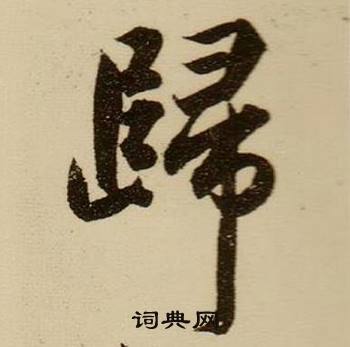 歸
词典网